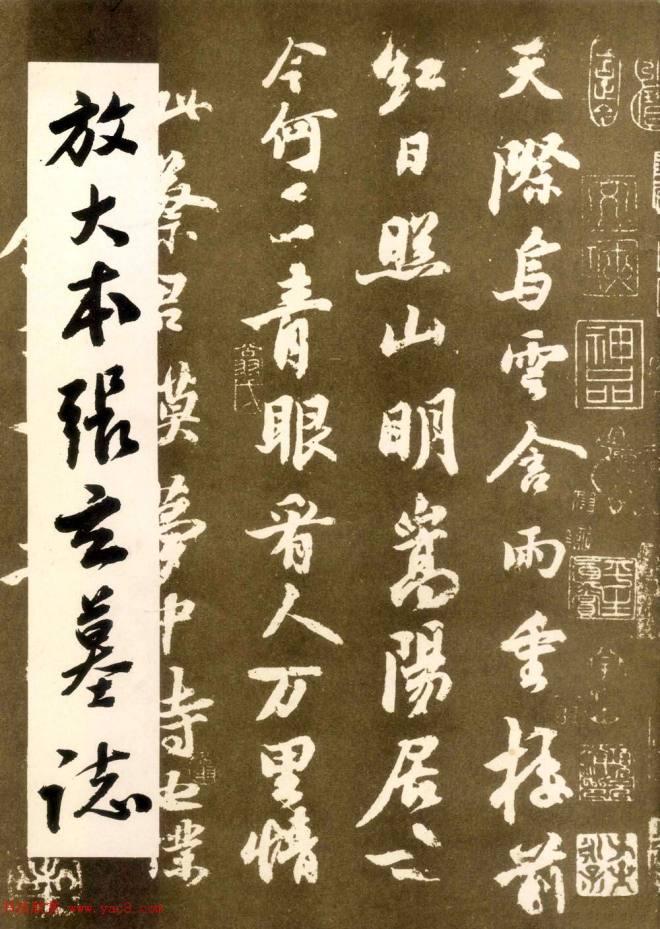 天際烏雲含雨重樓前
紅日照山明嵩陽居士
今何在青眼看人万里情
此蔡君謨夢中詩也僕
放大本張玄墓誌
神品
翁氏
www.yac8.com